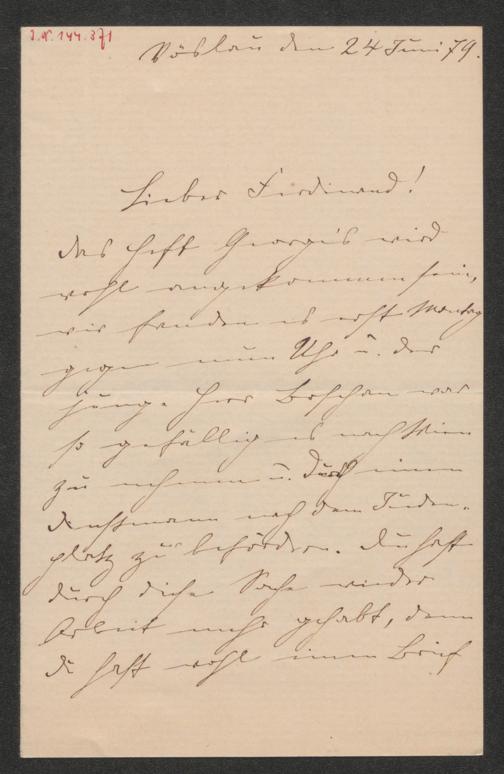 J.N. 144.371
Vöslau den 24 Juni 79.
Lieber Ferdinand!
Das Heft Georgi's wird
wohl angekommen sein,
wir fanden es erst Montag
gegen neun Uhr u. der
junge Herr Boschan war
so gefällig es nach Wien
zu nehmen u. durch einen
Dienstmann nach dem Juden-
platz zu befördern. Du hast
durch diese Sache wieder
Arbeit mehr gehabt, denn
du hast wohl einen Brief